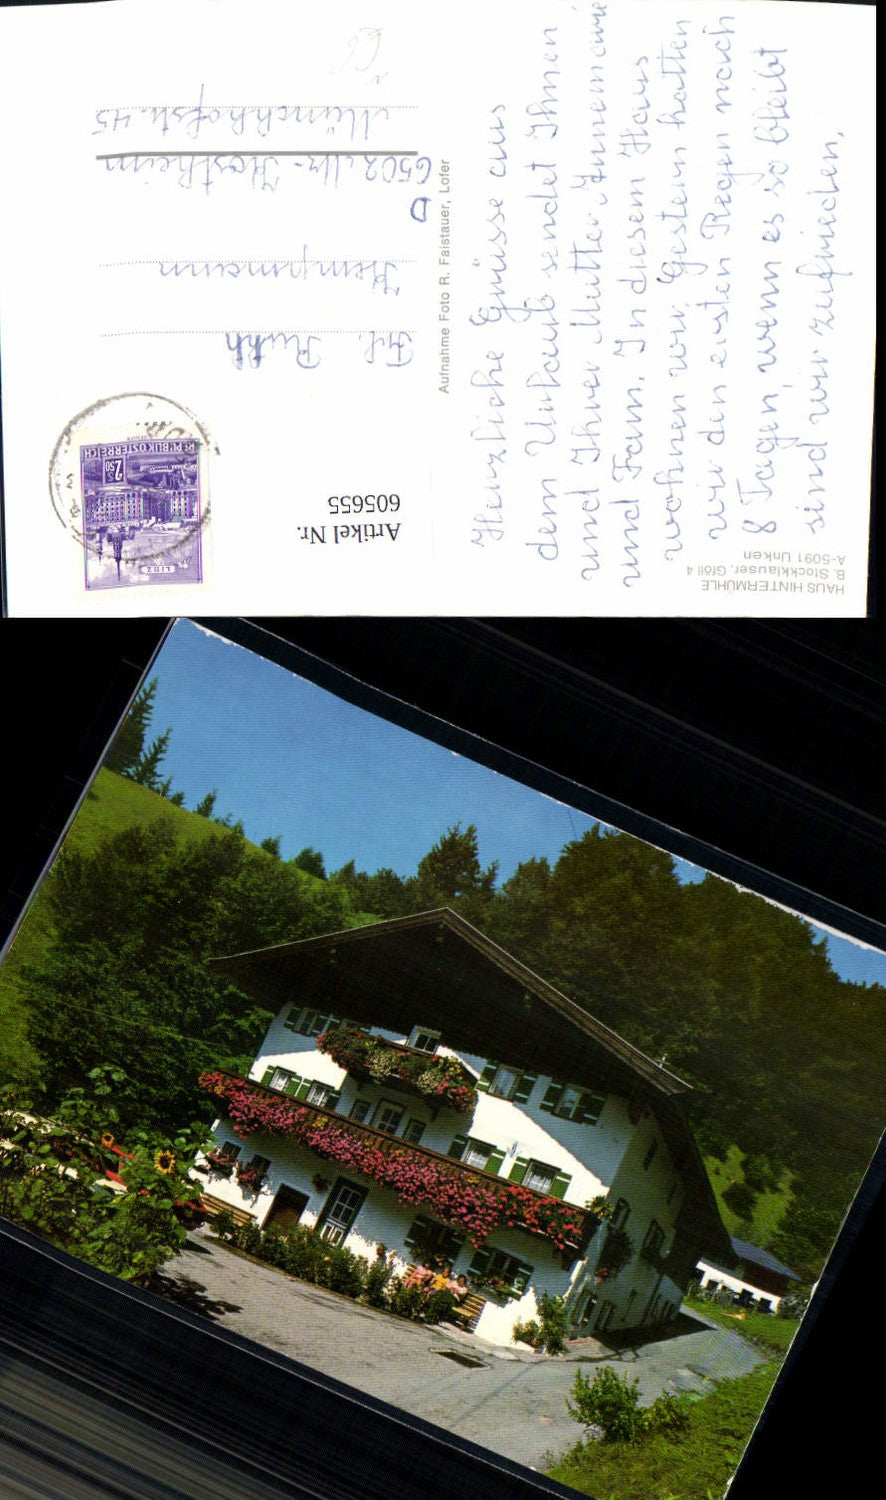 HAUS HINTERMÜHLE
B. Stockklauser, Gföll 4
A-5091 Unken
Herzliche Grüsse aus
dem Urlaub sendet Ihnen
und Ihrer Mutter Annemarie
und Fam. In diesem Haus
wohnen wir. Gestern hatten
wir den ersten Regen nach
8 Tagen, wenn es so bleibt
sind wir zufrieden.
Aufnahme Foto R. Faistauer, Lofer
Artikel Nr.
605655
REPUBLIK ÖSTERREICH
S 2.50
LINZ
Frl. Ruth
Hempmann
D
6502 Mz-Kostheim
Münchhofstr. 45